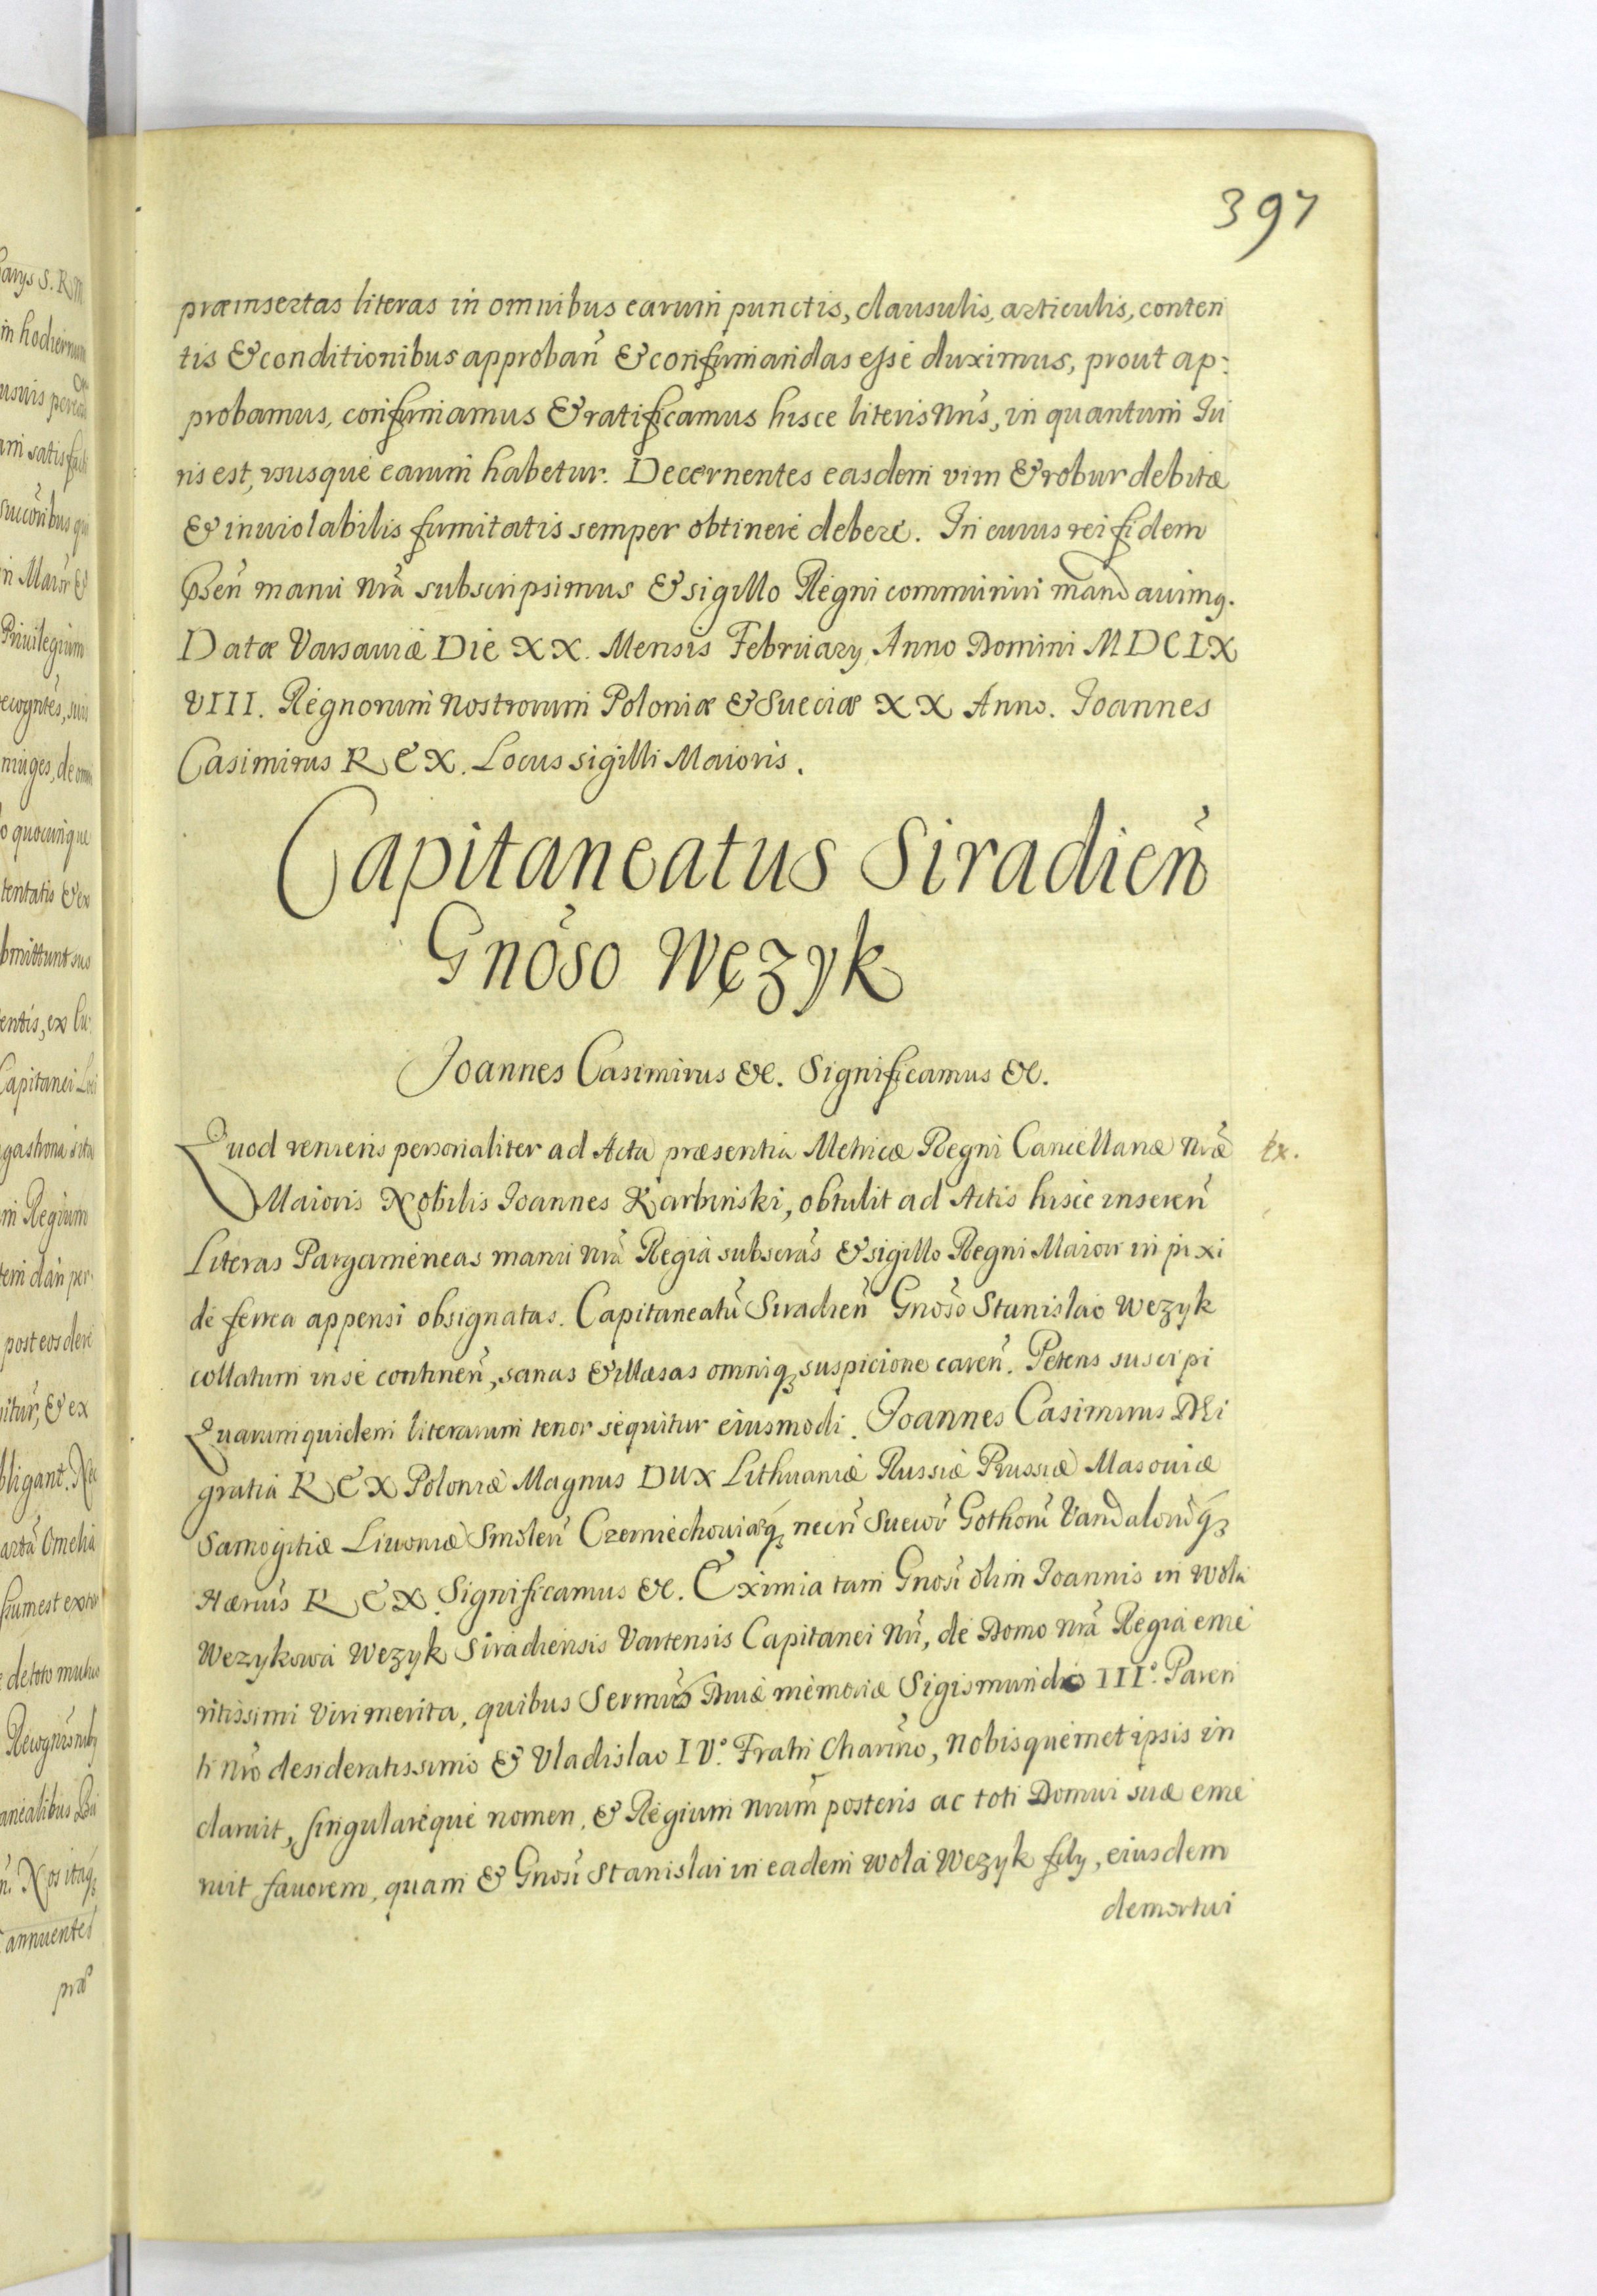 397
præinsertas literas in omnibus earum punctis, clausulis, articulis, conten
tis & conditionibus approbañ & confirmandas esse duximus, prout ap:
probamus, confirmamus & ratificamus hisce literis Nr̃is, in quantum Iu
ris est, ususque earum habetur. Decernentes easdem vim & robur debitæ
& inviolabilis firmitatis semper obtinere debere. In cuius rei fidem
p̃sen̄ manu Nr̃a subscripsimus & sigillo Regni communiri mandavimq.
Datæ Varsaviæ Die XX. Mensis February Anno Domini MDCLX
VIII. Regnorum Nostrorum Poloniæ & Sueciæ XX Anno. Ioannes
Casimirus REX. Locus sigilli Maioris.
Capitaneatus Siradien̄
Gnõso Węzyk
Joannes Casimirus &c. Significamus &c.
Quod veniens personaliter ad Acta præsentia Metricæ Regni Cancellariæ Nr̃æ
Maioris Nobilis Joannes Karbinski, obtulit ad Actis hisce inseren̄
Literas Pargameneas manu Nr̃a Regia subscr̃as & sigillo Regni Maiori in pixi
de ferrea appensi obsignatas. Capitaneatū Siradien̄ Gnõso Stanislao Wezyk
collatum in se continen̄, sanas & illæsas omniq; suspicione caren̄. Petens suscipi
Quarum quidem literarum tenor sequitur eiusmodi. Joannes Casimirus DEi
gratia REX Poloniæ Magnus DUX Lithuaniæ Russiæ Prussiæ Masoviæ
Samogitiæ Livoniæ Smolen̄ Czerniechoviæq; necn̄ Suecor̄ Gothorū Vandalorūq;
Hærius REX. Significamus &c. Eximia tam Gnosi olim Joannis in Wola
Wezykowa Wezyk Siradiensis Vartensis Capitanei Nr̃i, de Domo Nr̃a Regia eme
ritissimi Viri merita, quibus Sermũs Divæ memoriæ Sigismundo III°. Paren
ti Nr̃o desideratissimo & Vladislao IV°. Fratri Charim̃o, nobisquemet ipsis in
claruit, singulareque nomen, & Regium Nrum̃ posteris ac toti Domui suæ eme
ruit favorem, quam & Gnosi Stanislai in eadem Wola Wezyk fily, eiusdem
demortui